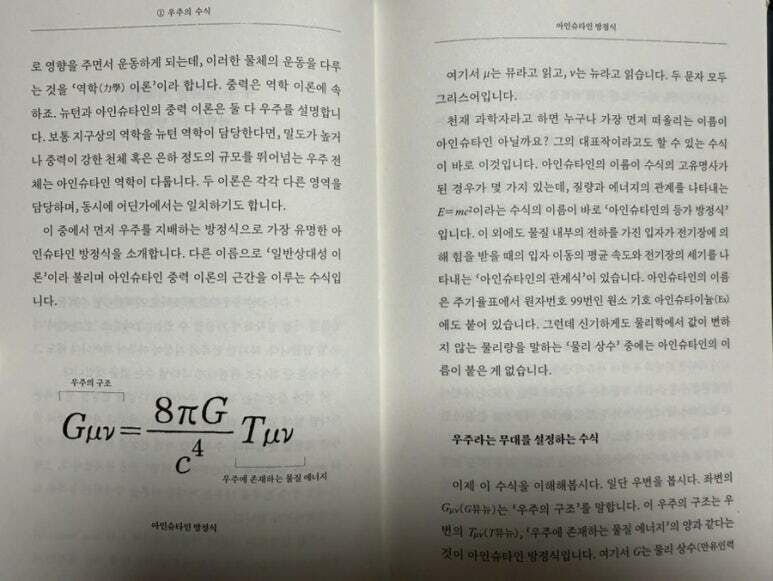 ① 우주의 수식
로 영향을 주면서 운동하게 되는데, 이러한 물체의 운동을 다루
는 것을 '역학(力學) 이론'이라 합니다. 중력은 역학 이론에 속
하죠. 뉴턴과 아인슈타인의 중력 이론은 둘 다 우주를 설명합니
다. 보통 지구상의 역학을 뉴턴 역학이 담당한다면, 밀도가 높거
나 중력이 강한 천체 혹은 은하 정도의 규모를 뛰어넘는 우주 전
체는 아인슈타인 역학이 다룹니다. 두 이론은 각각 다른 영역을
담당하며, 동시에 어딘가에서는 일치하기도 합니다.
이 중에서 먼저 우주를 지배하는 방정식으로 가장 유명한 아
인슈타인 방정식을 소개합니다. 다른 이름으로 '일반상대성 이
론'이라 불리며 아인슈타인 중력 이론의 근간을 이루는 수식입
니다.
우주의 구조
Gμν = 8πG/c⁴ Tμν
우주에 존재하는 물질 에너지
아인슈타인 방정식
아인슈타인 방정식
여기서 μ는 뮤라고 읽고, ν는 뉴라고 읽습니다. 두 문자 모두
그리스어입니다.
천재 과학자라고 하면 누구나 가장 먼저 떠올리는 이름이
아인슈타인 아닐까요? 그의 대표작이라고도 할 수 있는 수식
이 바로 이것입니다. 아인슈타인의 이름이 수식의 고유명사가
된 경우가 몇 가지 있는데, 질량과 에너지의 관계를 나타내는
E=mc²이라는 수식의 이름이 바로 '아인슈타인의 등가 방정식'
입니다. 이 외에도 물질 내부의 전하를 가진 입자가 전기장에 의
해 힘을 받을 때의 입자 이동의 평균 속도와 전기장의 세기를 나
타내는 '아인슈타인의 관계식'이 있습니다. 아인슈타인의 이름
은 주기율표에서 원자번호 99번인 원소 기호 아인슈타이늄(Es)
에도 붙어 있습니다. 그런데 신기하게도 물리학에서 같이 변하
지 않는 물리량을 말하는 '물리 상수' 중에는 아인슈타인의 이
름이 붙은 게 없습니다.
우주라는 무대를 설정하는 수식
이제 이 수식을 이해해봅시다. 일단 우변을 봅시다. 좌변의
Gμν(G뮤뉴)는 '우주의 구조'를 말합니다. 이 우주의 구조는 우
변의 Tμν(T뮤뉴), '우주에 존재하는 물질 에너지'의 양과 같다는
것이 아인슈타인 방정식입니다. 여기서 G는 물리 상수(만유인력